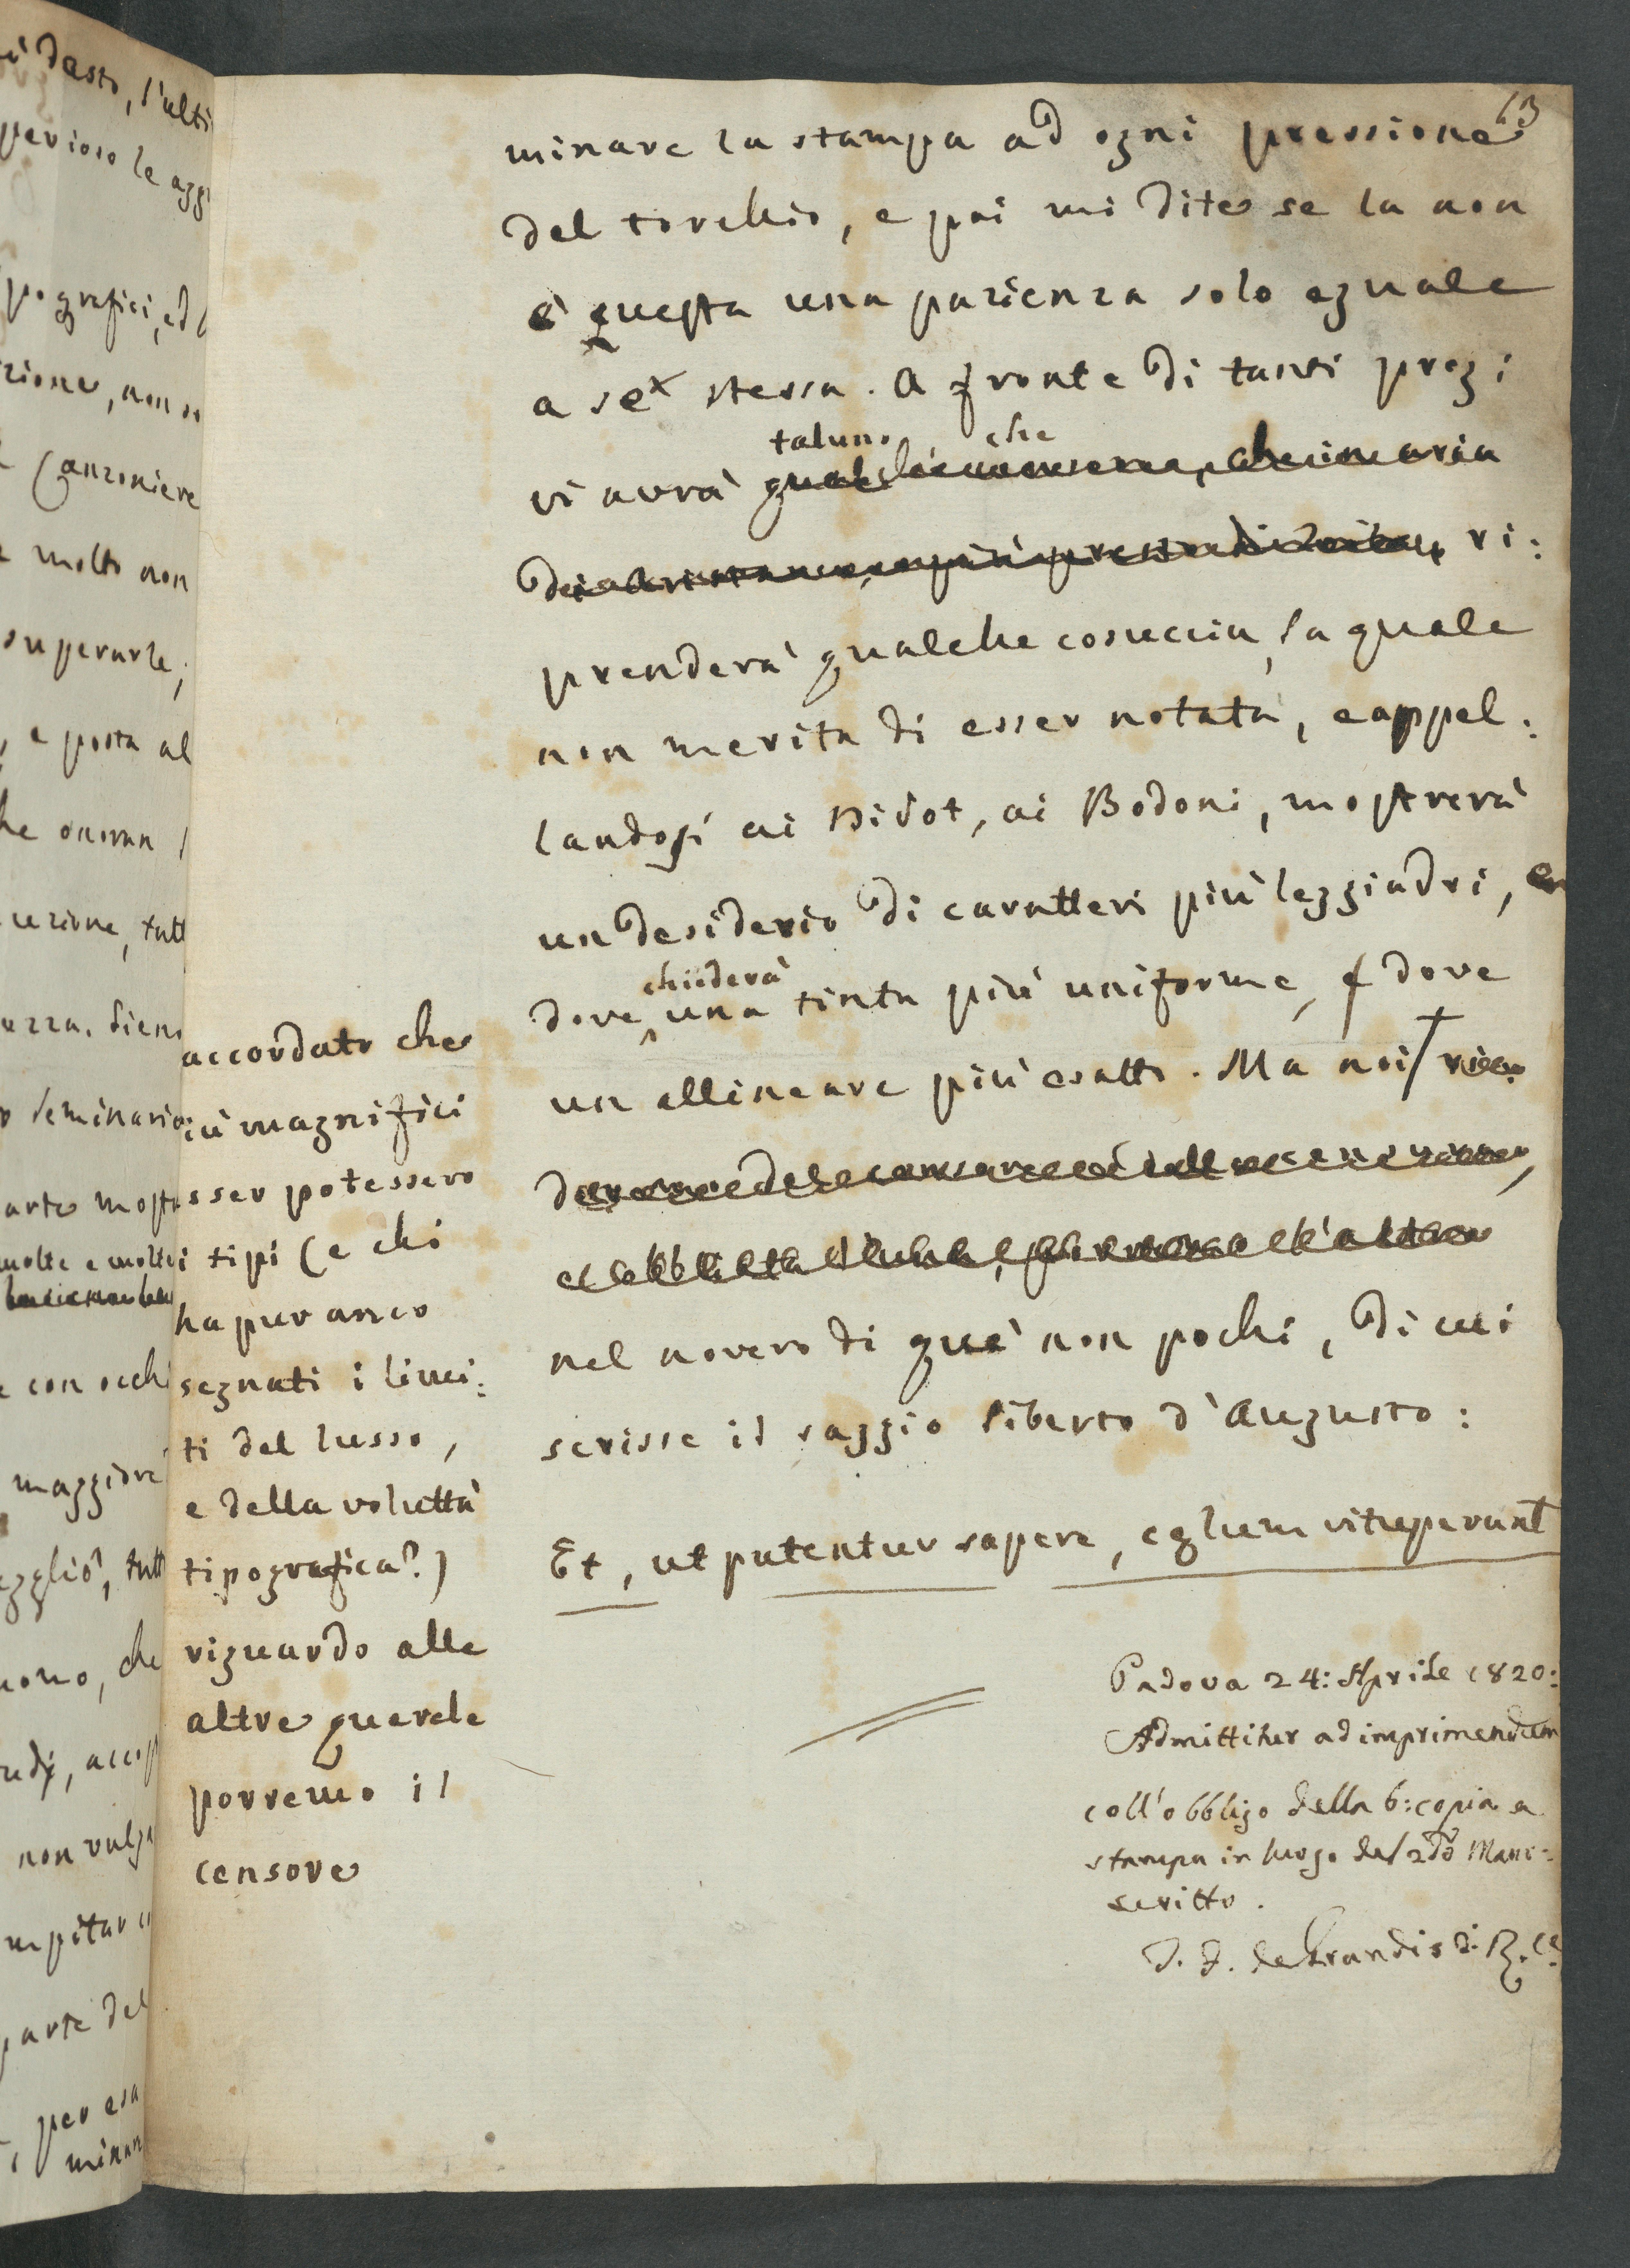 13
minare la stampa ad ogni pressione
del torchio, e poi mi dite se la non
è questa una pazienza solo eguale
a se stessa. A fronte di tanti pregi
taluno, che
vi avrà
ri:
prenderà qualche cosuccia, la quale
non merita di esser notata, e appel:
landosi ai Didot, ai Bodoni, mostrerà
un desiderio di caratteri più leggiadri,
chiederà
dove una tinta più uniforme, e dove
un allineare più esatto. Ma noi
nel novero di que' non pochi, di cui
scrisse il saggio liberto d'Augusto:
Et, ut putentur sapere, cœlum vituperant
accordato che
più magnifici
esser potessero
i tipi (e chi
ha pur anco
segnati i limi:
ti del lusso,
e della voluttà
tipografica?)
riguardo alle
altre querele
porremo il
censore
Padova 24: Aprile 1820:
Admittitur ad imprimendum
coll'obbligo della 6: copia a
stampa in luogo del 2do Manu:
scritto.
de Grandis
più desto, l'ulti
perioso le agg
pografici, ed
zione, non so
Canzoniere
molto non
superarle;
e posta al
he onoran
cuzione, tutt
Sieno
Seminario
arte most
molte e molte
con occhi
maggiore
tutt
uomo, che
non vulga
parte del
per esa
minar